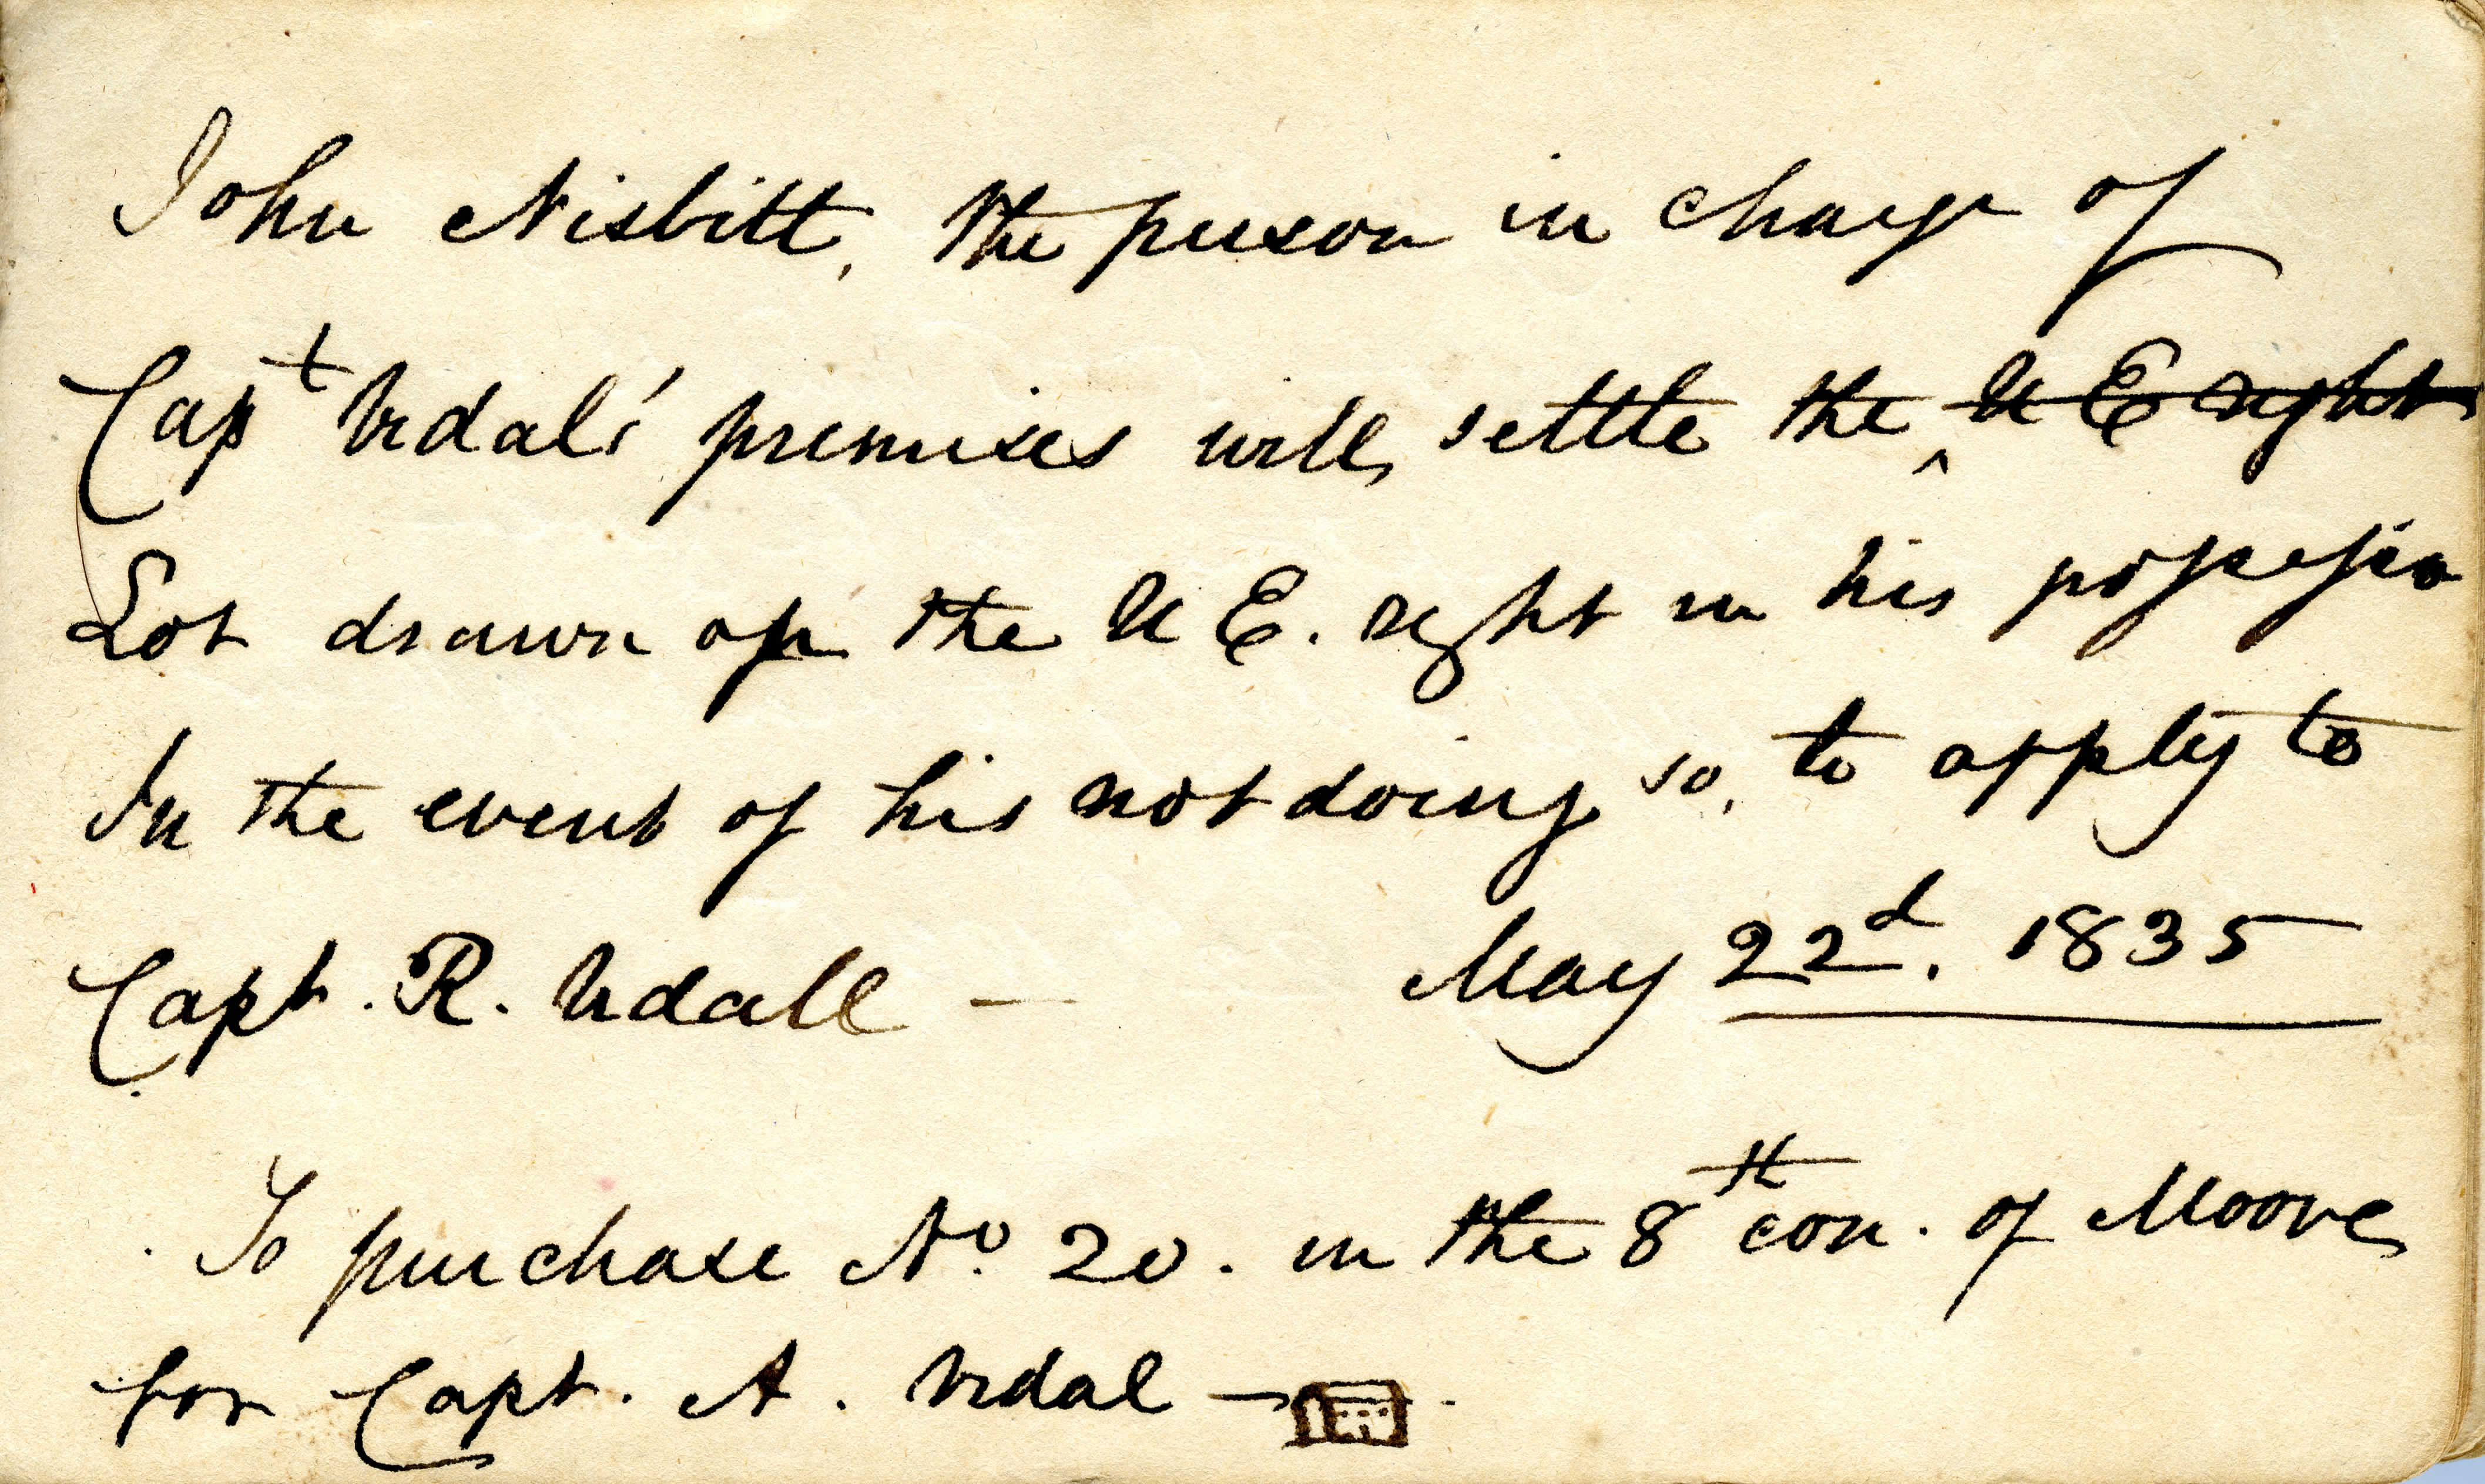 John Nisbitt, the person in charge of
Capt Vidals' premises will settle the ^ U E right
Lot drawn on the U E. right in his possession
In the event of his not doing so, to apply to
Capt. R. Vidall — May 22d. 1835
To purchase No. 20. in the 8th con. of Moore
for Capt. A. Vidal —